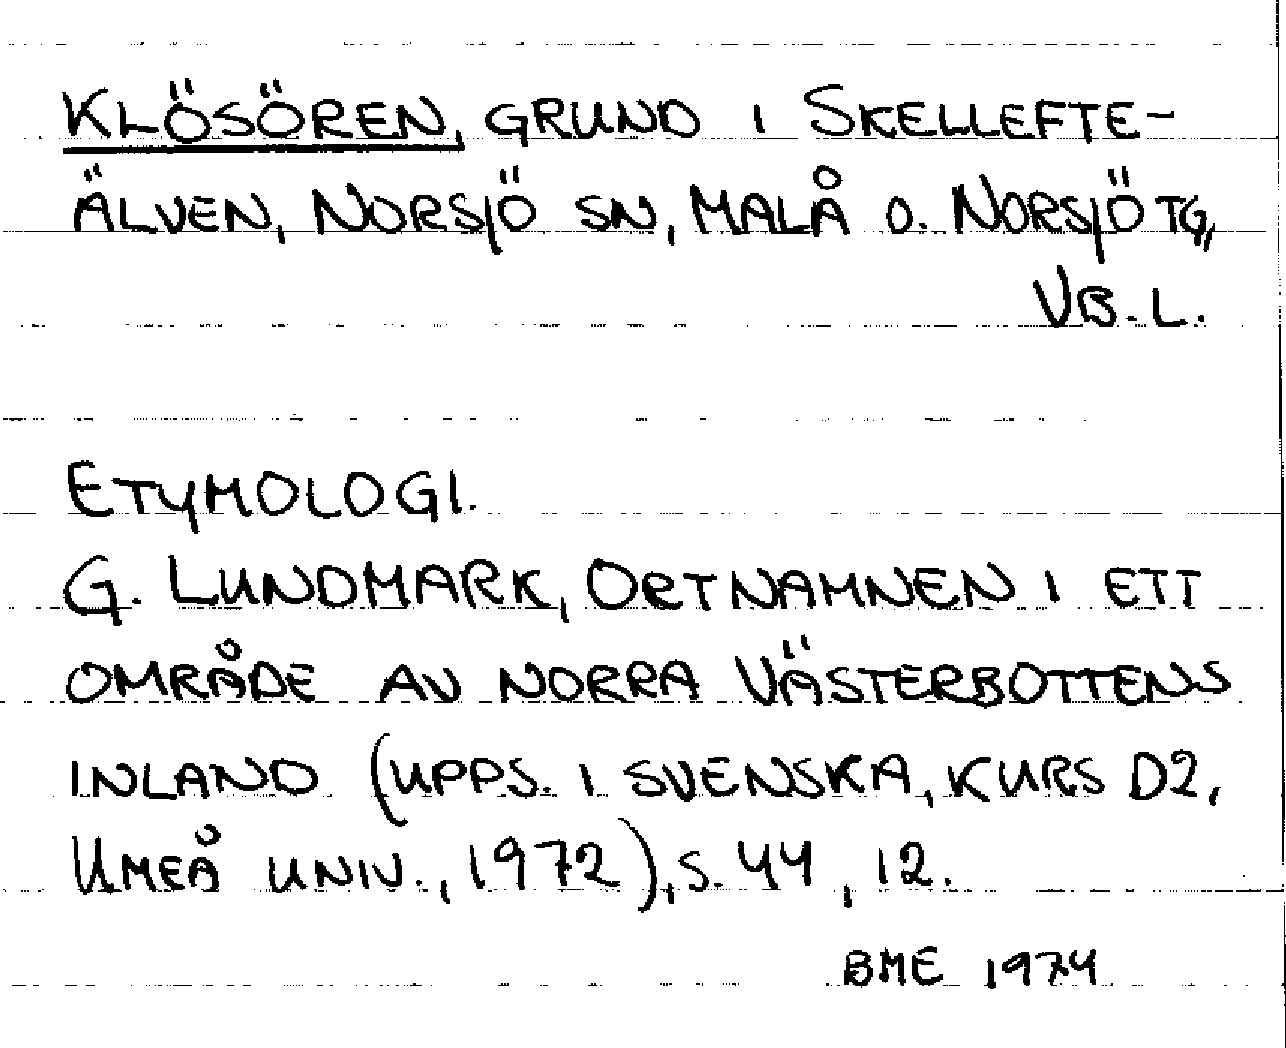 KLÖSÖREN, GRUND I SKELLEFTE-
ÄLVEN, NORSJÖ SN, MALÅ O. NORSJÖ TG,
VB.L.
ETYMOLOGI.
G. LUNDMARK, ORTNAMNEN I ETT
OMRÅDE AV NORRA VÄSTERBOTTENS
INLAND (UPPS. I SVENSKA, KURS D2,
UMEÅ UNIV., 1972), S. 44, 12.
BME 1974